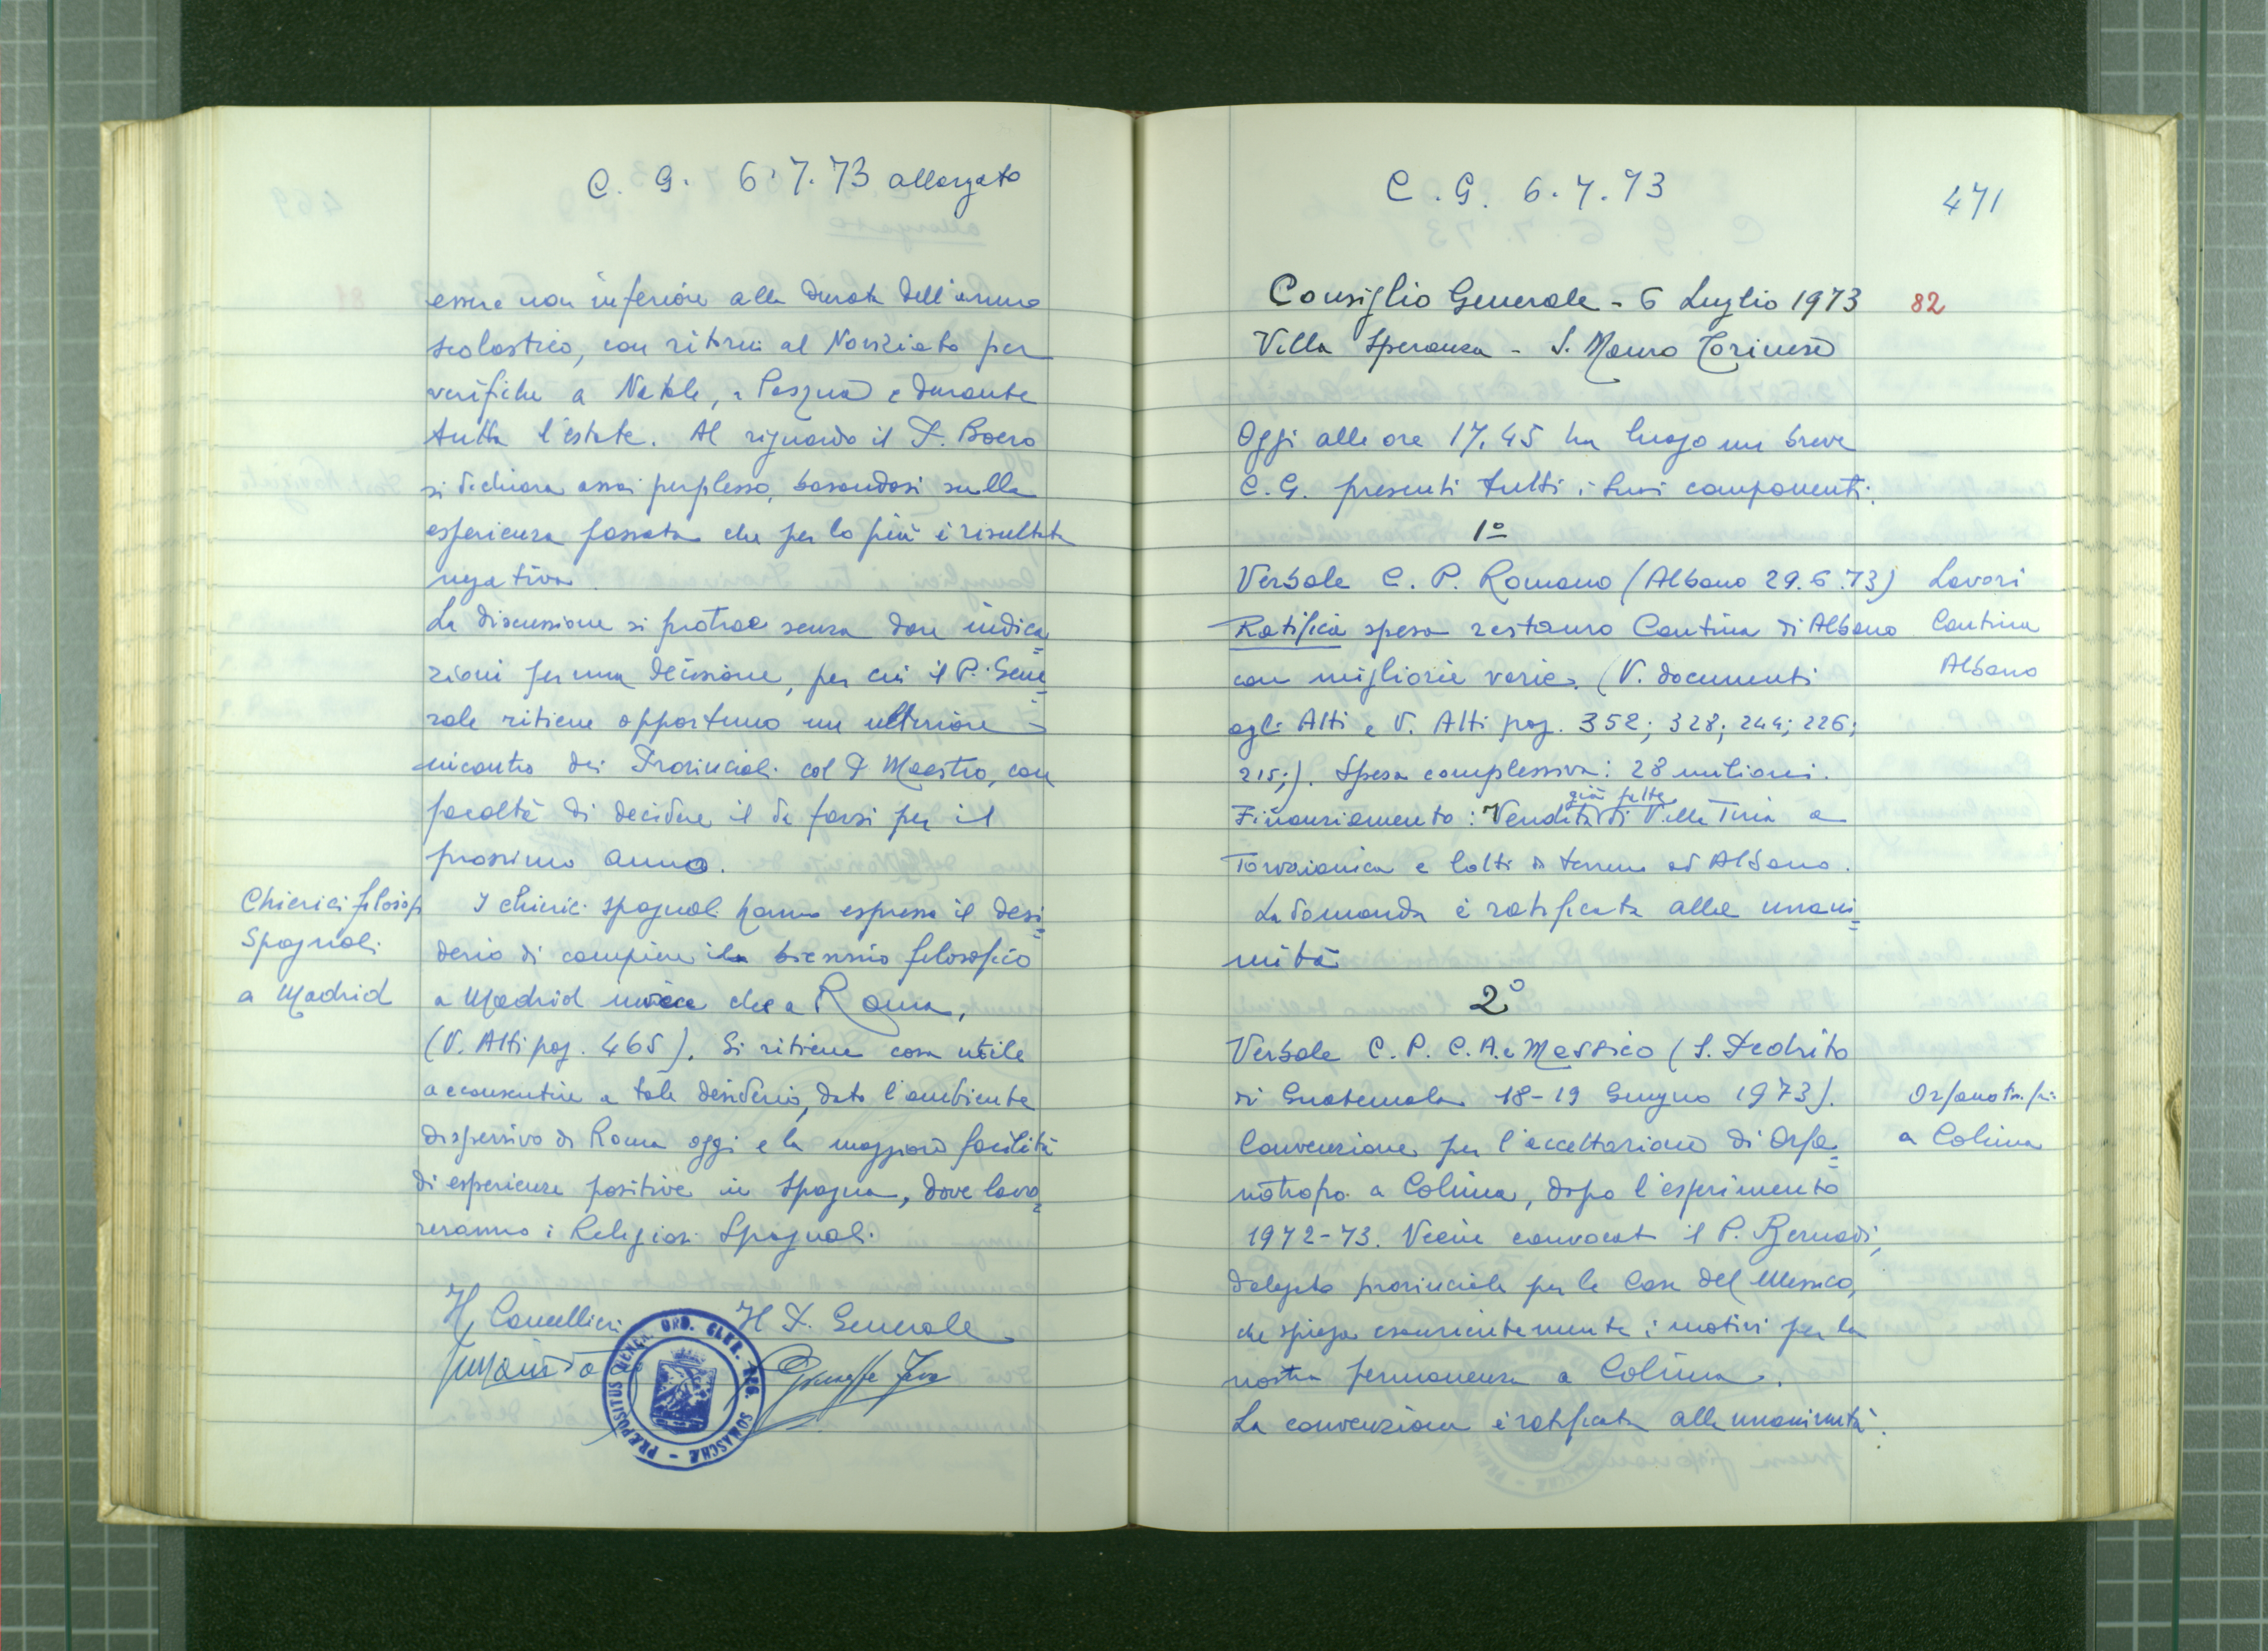 C. G. 6.7.73 allargato
essere non inferiore alla durata dell'anno
scolastico, con ritorni al Noviziato per
verifiche a Natale, a Pasqua e durante
tutta l'estate. Al riguardo il P. Boero
si dichiara assai perplesso, basandosi sulla
esperienza passata che per lo più è risultata
negativa
La discussione si protrae senza dare indica=
zioni per una decisione, per cui il P. Gene=
rale ritiene opportuno un ulteriore
incontro dei Provinciali col P. Maestro, con
facoltà di decidere il da farsi per il
prossimo anno.
Chierici filosofi
Spagnoli
a Madrid
I chierici spagnoli hanno espresso il desi=
derio di compiere il biennio filosofico
a Madrid invece che a Roma,
(V. Atti pag. 465). Si ritiene cosa utile
acconsentire a tale desiderio, dato l'ambiente
dispersivo di Roma oggi e la maggiore facilità
di esperienze positive in Spagna, dove lavo=
reranno i Religiosi Spagnoli.
Il Cancelliere Il P. Generale
Giuseppe Fava
PRÆPOSITUS GENER. ORD. CLER. REG. SOMASCHÆ
C. G. 6.7.73
471
Consiglio Generale - 6 Luglio 1973
82
Villa Speranza - S. Mauro Torinese
Oggi alle ore 17,45 ha luogo un breve
C.G. presenti tutti i suoi componenti.
1º
Verbale C. P. Romano (Albano 29.6.73)
Ratifica spesa restauro Cantina di Albano
con migliorie varie. (V. documenti
agli Atti e V. Atti pag. 352; 328; 244; 226;
215;). Spesa complessiva: 28 milioni.
già fatta
Finanziamento: Vendita di Villa Tiria a
Torvaianica e lotti di terreno ad Albano.
La domanda è ratificata alla unani=
mità
Lavori
Cantina
Albano
2º
Verbale C. P. C.A. e Messico (S. Pedrito
di Guatemala 18-19 Giugno 1973).
Convenzione per l'accettazione di Orfa=
notrofio a Colima, dopo l'esperimento
1972-73. Viene convocato il P. Bernardi,
delegato provinciale per le Case del Messico,
che spiega esaurientemente i motivi per la
nostra permanenza a Colima.
La convenzione è ratificata alla unanimità.
Orfanotrofi:
a Colima